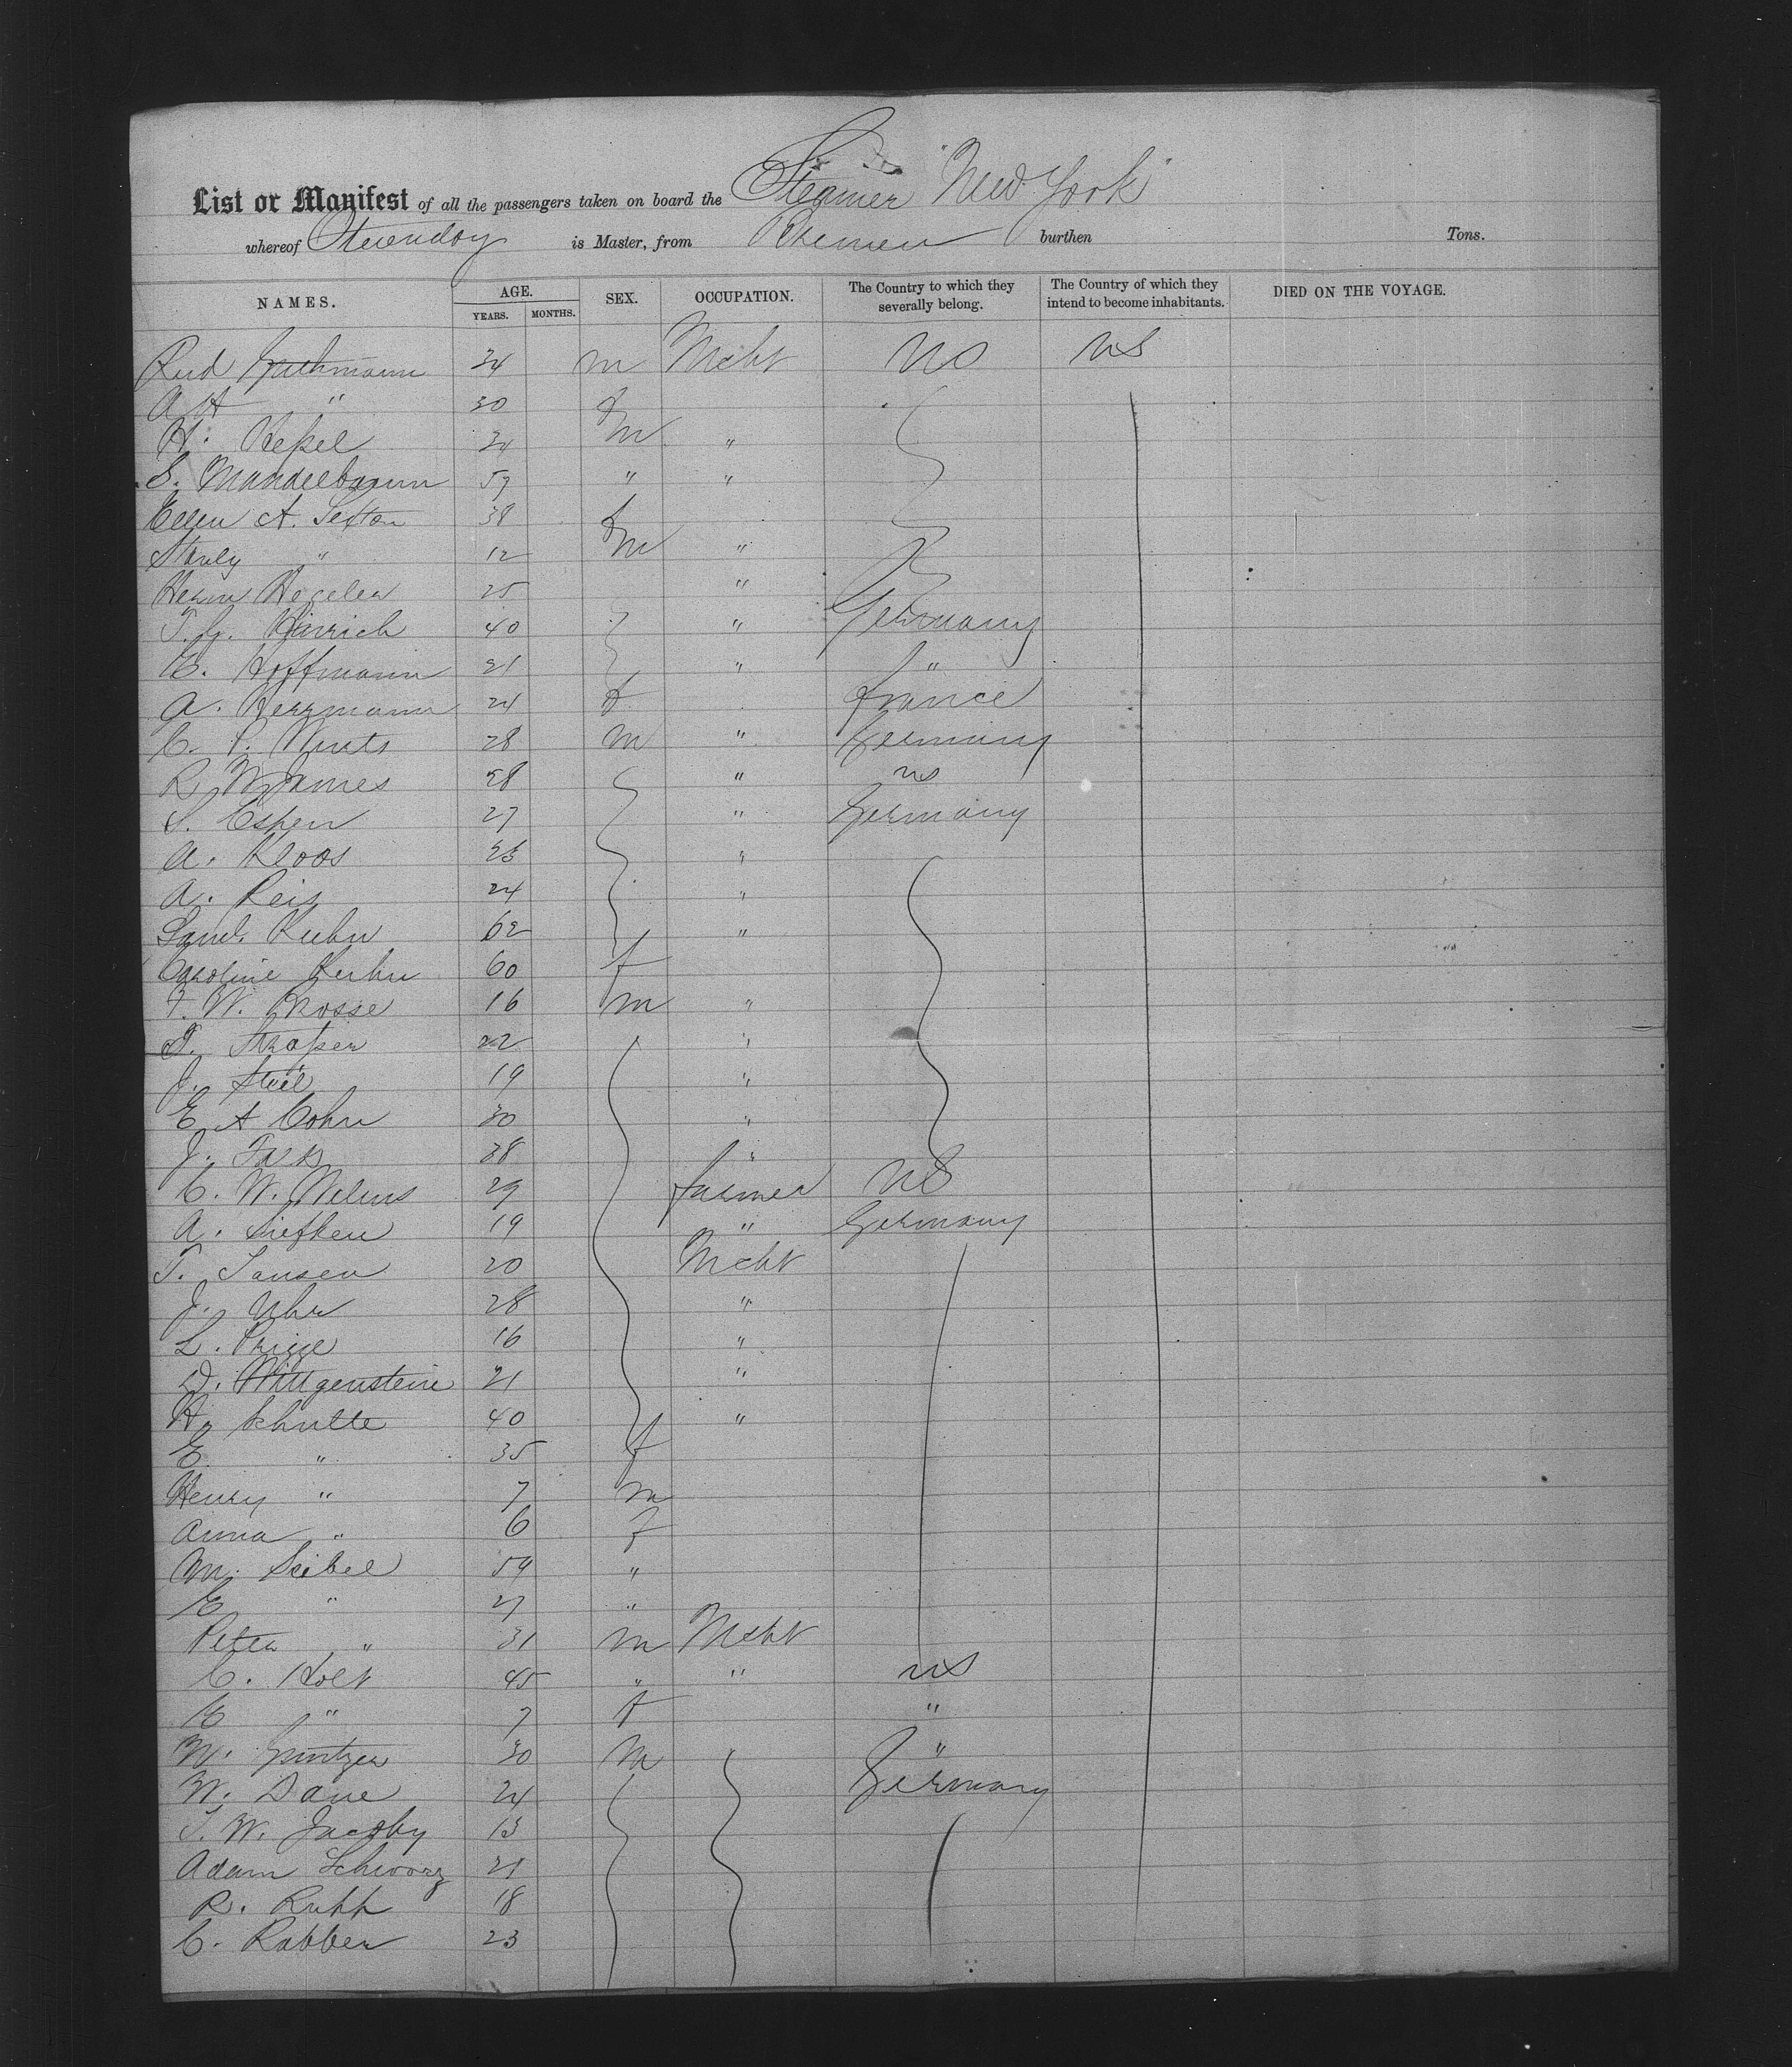 List or Manifest of all the passengers taken on board the Steamer "New York"
whereof is Master, from Bremen burthen Tons.
NAMES. AGE. YEARS. MONTHS. SEX. OCCUPATION. The Country to which they severally belong. The Country of which they intend to become inhabitants. DIED ON THE VOYAGE.
Rud 34 m Mcht US US
A " 30 f
H. 34 m "
S. Mandelbaum " "
Ellen A. Sexton 38 f
Stanly " 12 m "
Herm Hegeler 25 "
Hinrich 40 " Germany
E. Hoffmann 21 " "
A. Herrmann 24 f France
C. 28 m " Germany
R. W. James 28 " US
S. Espen 27 " Germany
A. Kloos "
A. Reis 24 "
Saml. Kuhn 62 "
Caroline Kuhn 60 f
F. W. Grosse 16 m "
22 "
J. 19 "
E A Cohn 30 "
J. Falk 38 "
C. W. 29 farmer US
A. Siefken 19 " Germany
T. Jansen 20 Mcht
J. Uhr 28 "
L. 16 "
D. Wittgenstein 21 "
H. Schulte 40 "
E. " 35 f
Henry " 7 m
Anna " 6 f
M. Seibel 59 "
E " 27 "
Peter " 31 m Mcht
C. Holt 45 " " US
E " 7 f "
M. 30 m "
W. Dane 24 Germany
W. Jacoby 13
Adam Schwarz 21
R. Rupp 18
C. Rabben 23